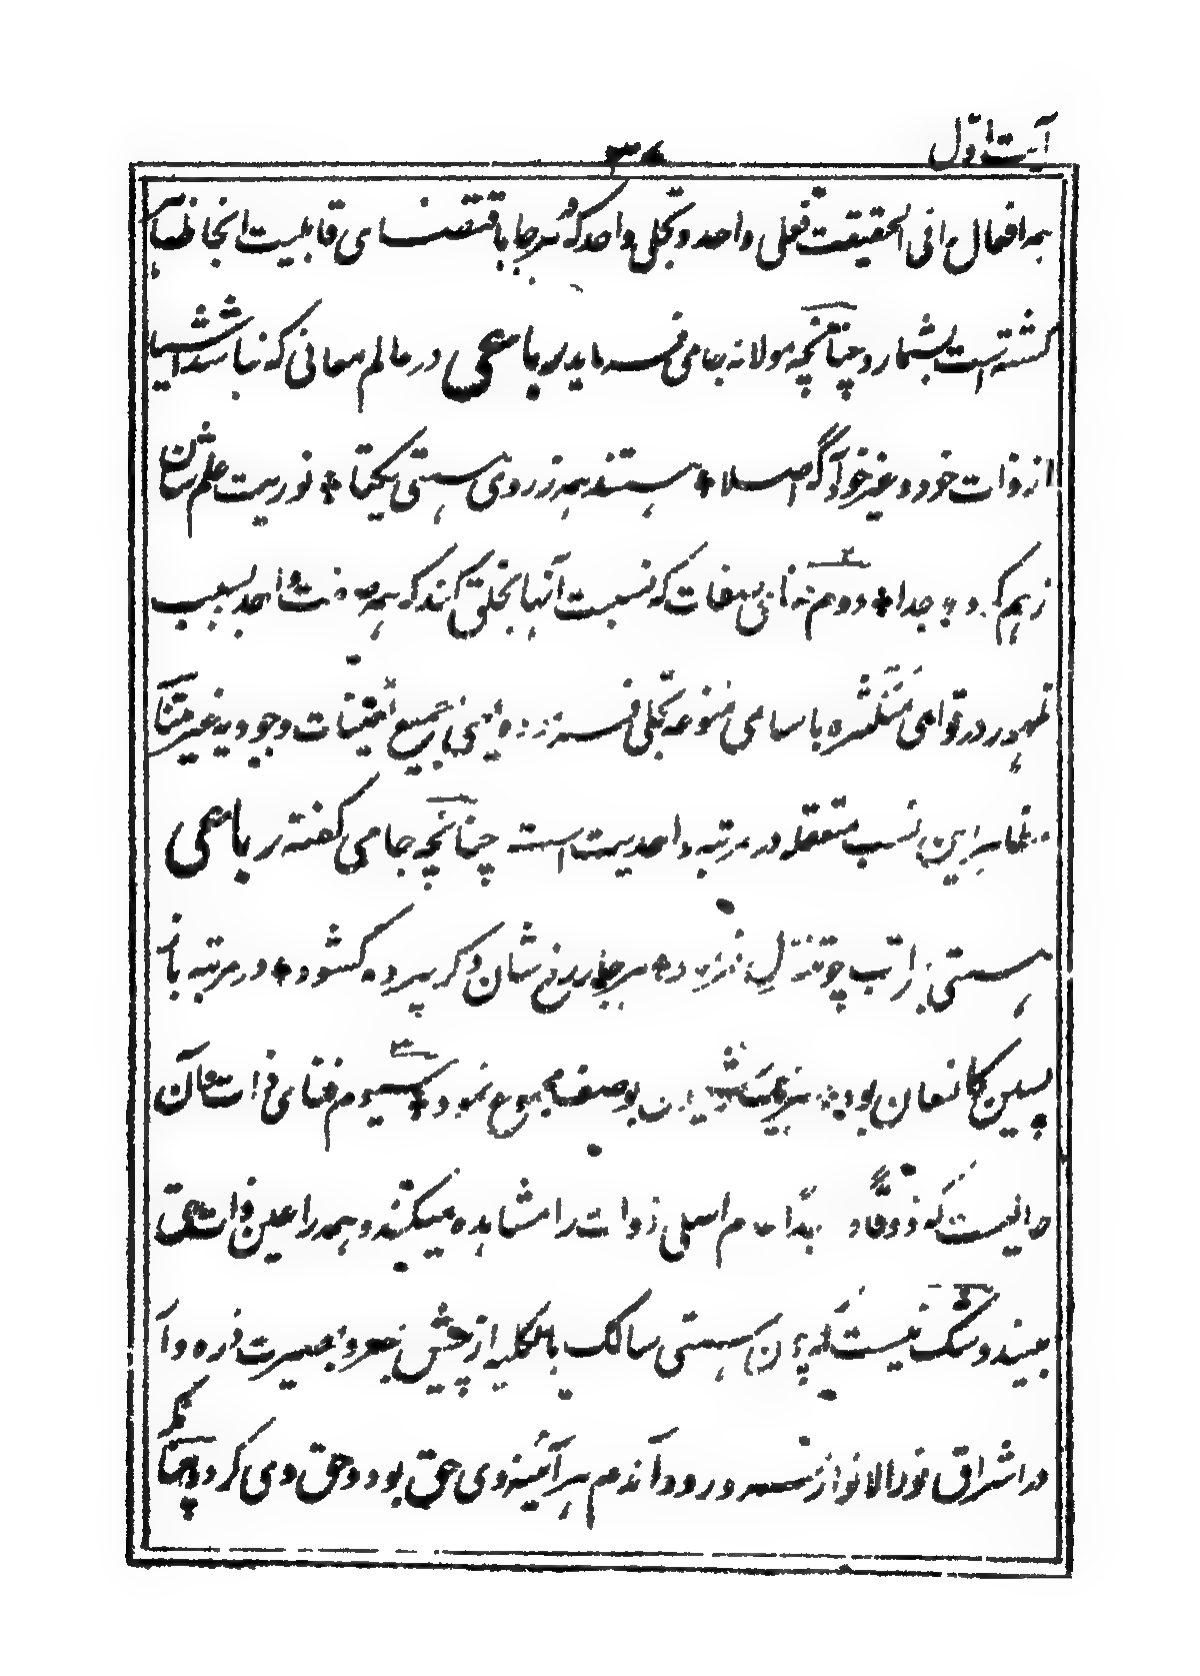 آیت اوّل
۳۷
همه افعال را فی الحقیقت فعلی واحد و تجلی واحد که هر جا باقتضای قابلیت انجا ظاهر
گشته است بشمارد چنانچه مولانه جامی فرماید رباعی در عالم معانی که نباشد اشیا
از ذات خود و غیر خود آگه اصلا * هستند همه ز روی هستی یکتا * نوریت علم شان
ز هم کرد جدا * دوم فنائی صفات که نسبت آنها بخلق کنند که همه صفت واحد بسبب
ظهور در قوامی متکثره باسامی متنوعه تجلی جمیع تعینات وجودیه غیر متناهی
مظاهر این نسب متعقله در مرتبه واحدیت است چنانچه جامی گفته رباعی
هستی بمراتب چو تنزل فرمود * هر جا ز رخ شان دگر پرده کشود * در مرتبه باز
پسین کانسان بود * بوصف مجموع نمود * سیوم فنای ذات و آن
حالیست که ذوقا و اصلی ذوات را مشاهده میکنند و همه را عین ذات حق
بینند و شک نیست که چون هستی سالک بالکلیه از چشم بصیرت ذره وار
در اشراق نور الانوار مستور و رود آندم هر آئینه وی حق بود و حق وی گردد چنانکه